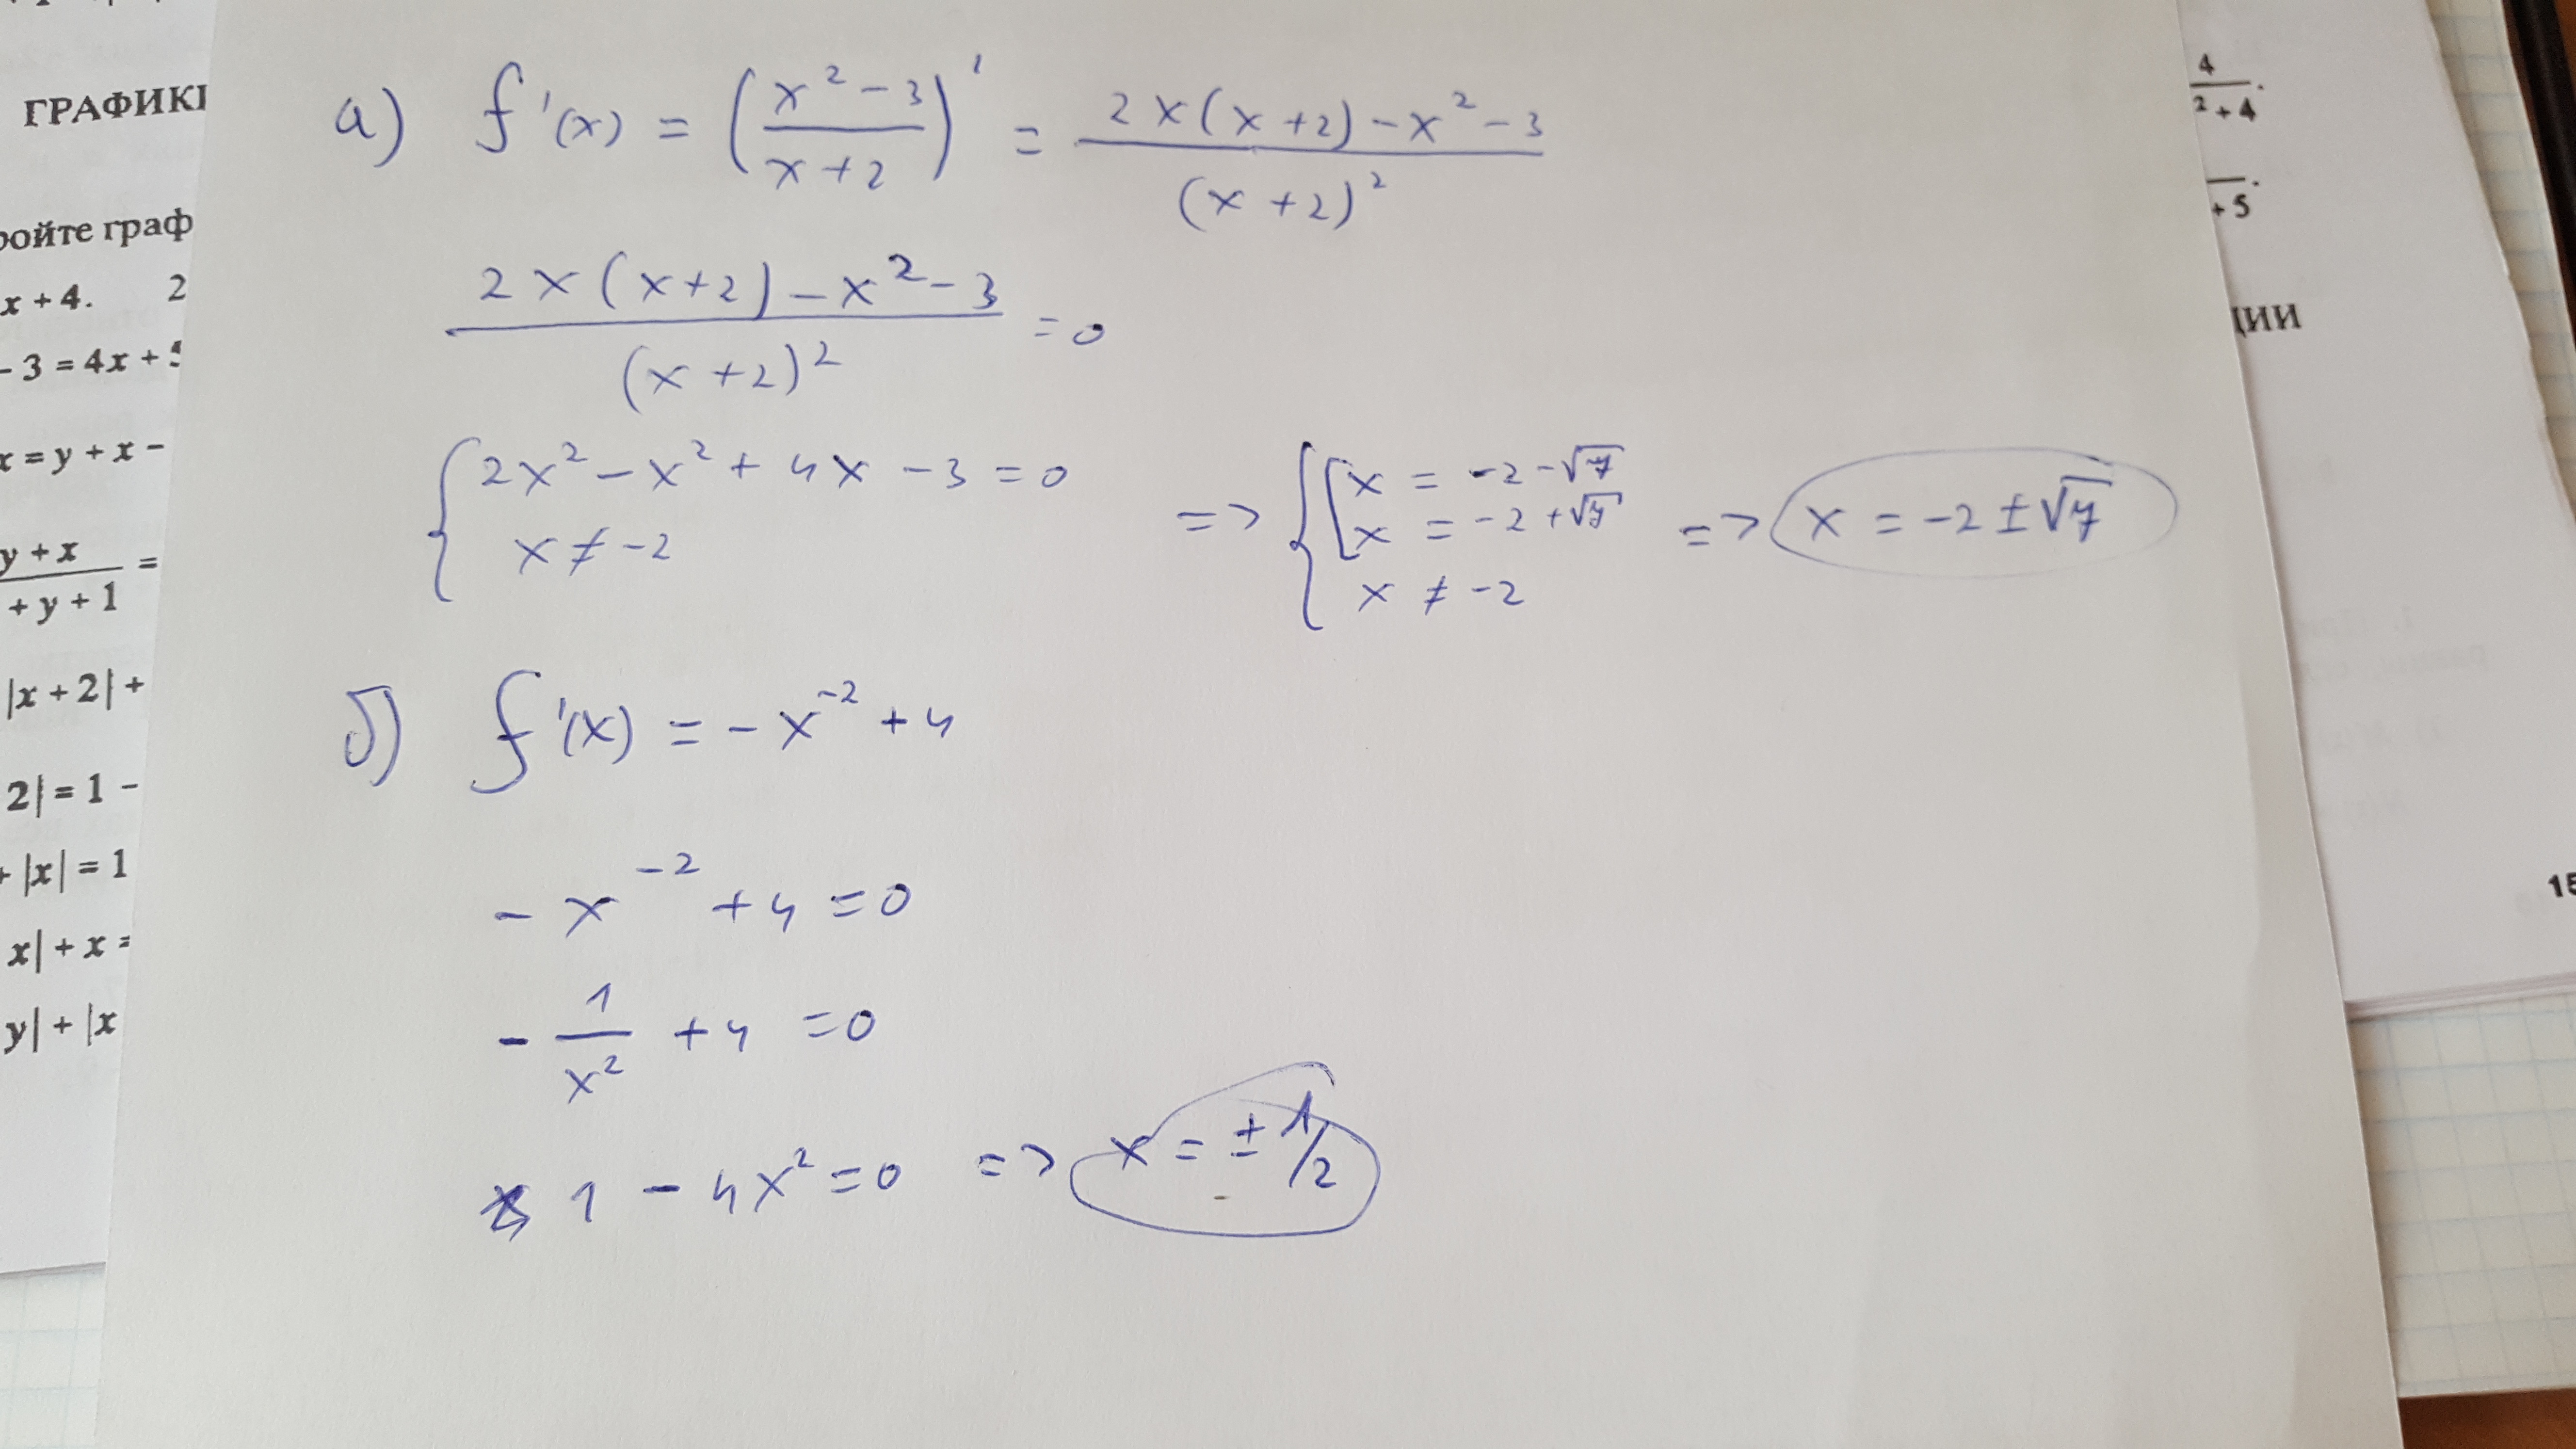 ГРАФИКИ
ройте граф
x + 4. 2
- 3 = 4x + 5
x = y + x -
y + x
=
+ y + 1
|x + 2| +
2| = 1 -
+ |x| = 1
x| + x =
y| + |x
а) f'(x) = ((x² - 3)/(x + 2))' = (2x(x+2) - x² - 3)/(x+2)²
(2x(x+2) - x² - 3)/(x+2)² = 0
{ 2x² - x² + 4x - 3 = 0 => { [ x = -2 - √7
x = -2 + √7 => x = -2 ± √7
x ≠ -2 x ≠ -2
б) f'(x) = -x⁻² + 4
-x⁻² + 4 = 0
-1/x² + 4 = 0
1 - 4x² = 0 => x = ± 1/2
4
2 + 4.
+ 5.
ции
15